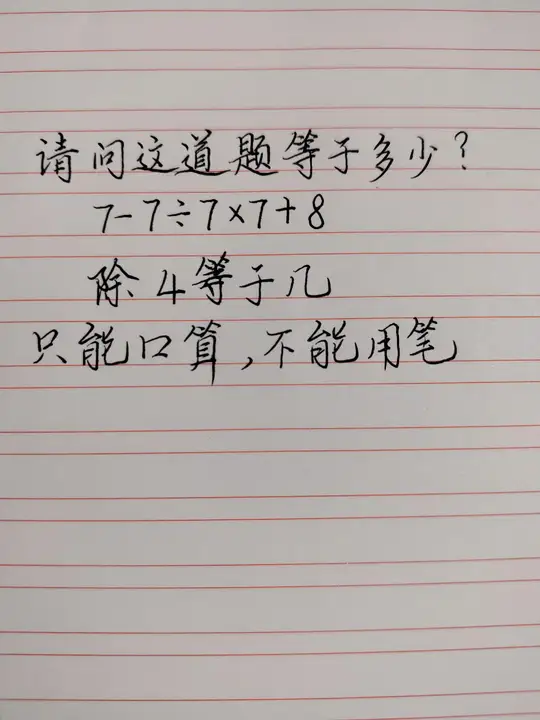 请问这道题等于多少?
7-7÷7×7+8
除4等于几
只能口算,不能用笔